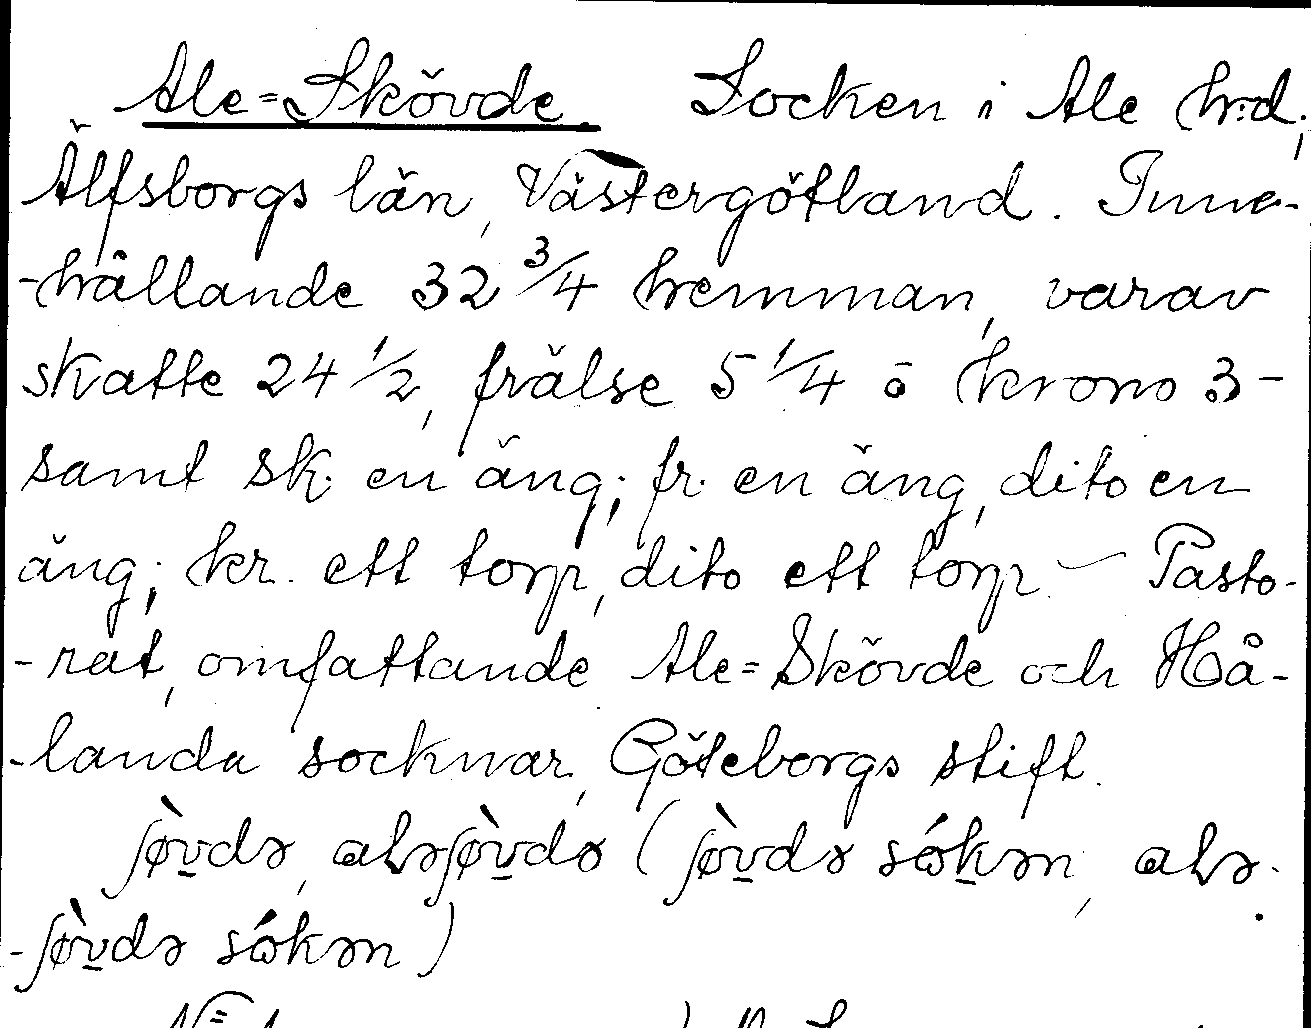 Ale=Skövde. Socken i Ale h:d;
Älfsborgs län, Västergötland. Inne-
-hållande 32 3/4 hemman, varav
skatte 24 1/2, frälse 5 1/4 o krono 3 -
samt sk. en äng; fr. en äng, dito en
äng; kr. ett torp, dito ett torp - Pasto-
-rat, omfattande Ale=Skövde och Hå-
-landa socknar, Göteborgs stift.
ʃø̀vdə, aləʃø̀vdə (ʃø̀vdə sɷ́kən, alə-
-ʃø̀vdə sɷ́kən)